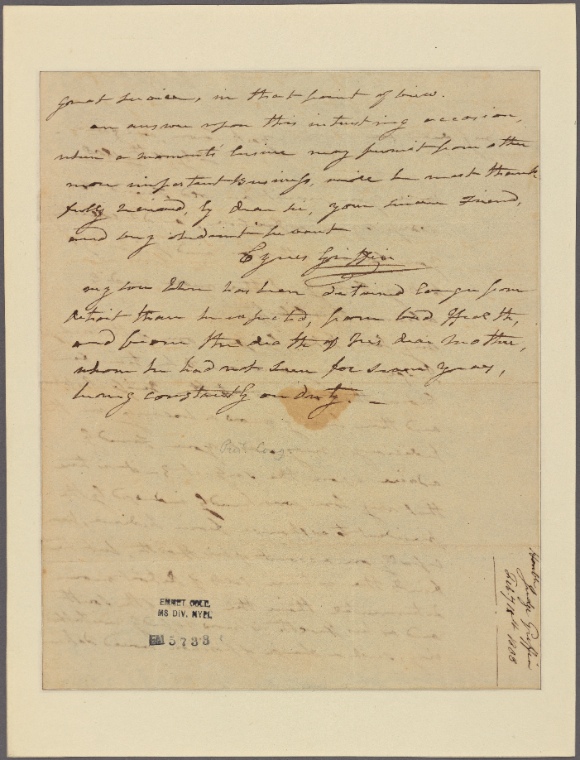 great services, in that point of view.
an answer upon this interesting occasion,
when a moments leisure may permit from other
more important Business, will be most thank-
fully received, by dear sir, your sincere Friend,
and very obedient servant
Cyrus Griffin
my son has been detained longer from
Detroit than he expected, from bad Health,
and from the death of his dear mother,
whom he had not seen for seven years,
being constantly on duty. —
Presdt Congress
EMMET COLL.
MS DIV. NYPL
5733
Honble
Judge Griffin
Feby 18th 1808